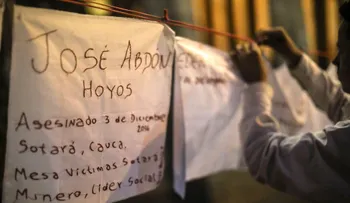 JOSÉ ABDÓN
HOYOS
Asesinado 3 de Diciembre
2016
Sotará, Cauca,
Mesa Víctimas Sotará
Minero, Líder Social